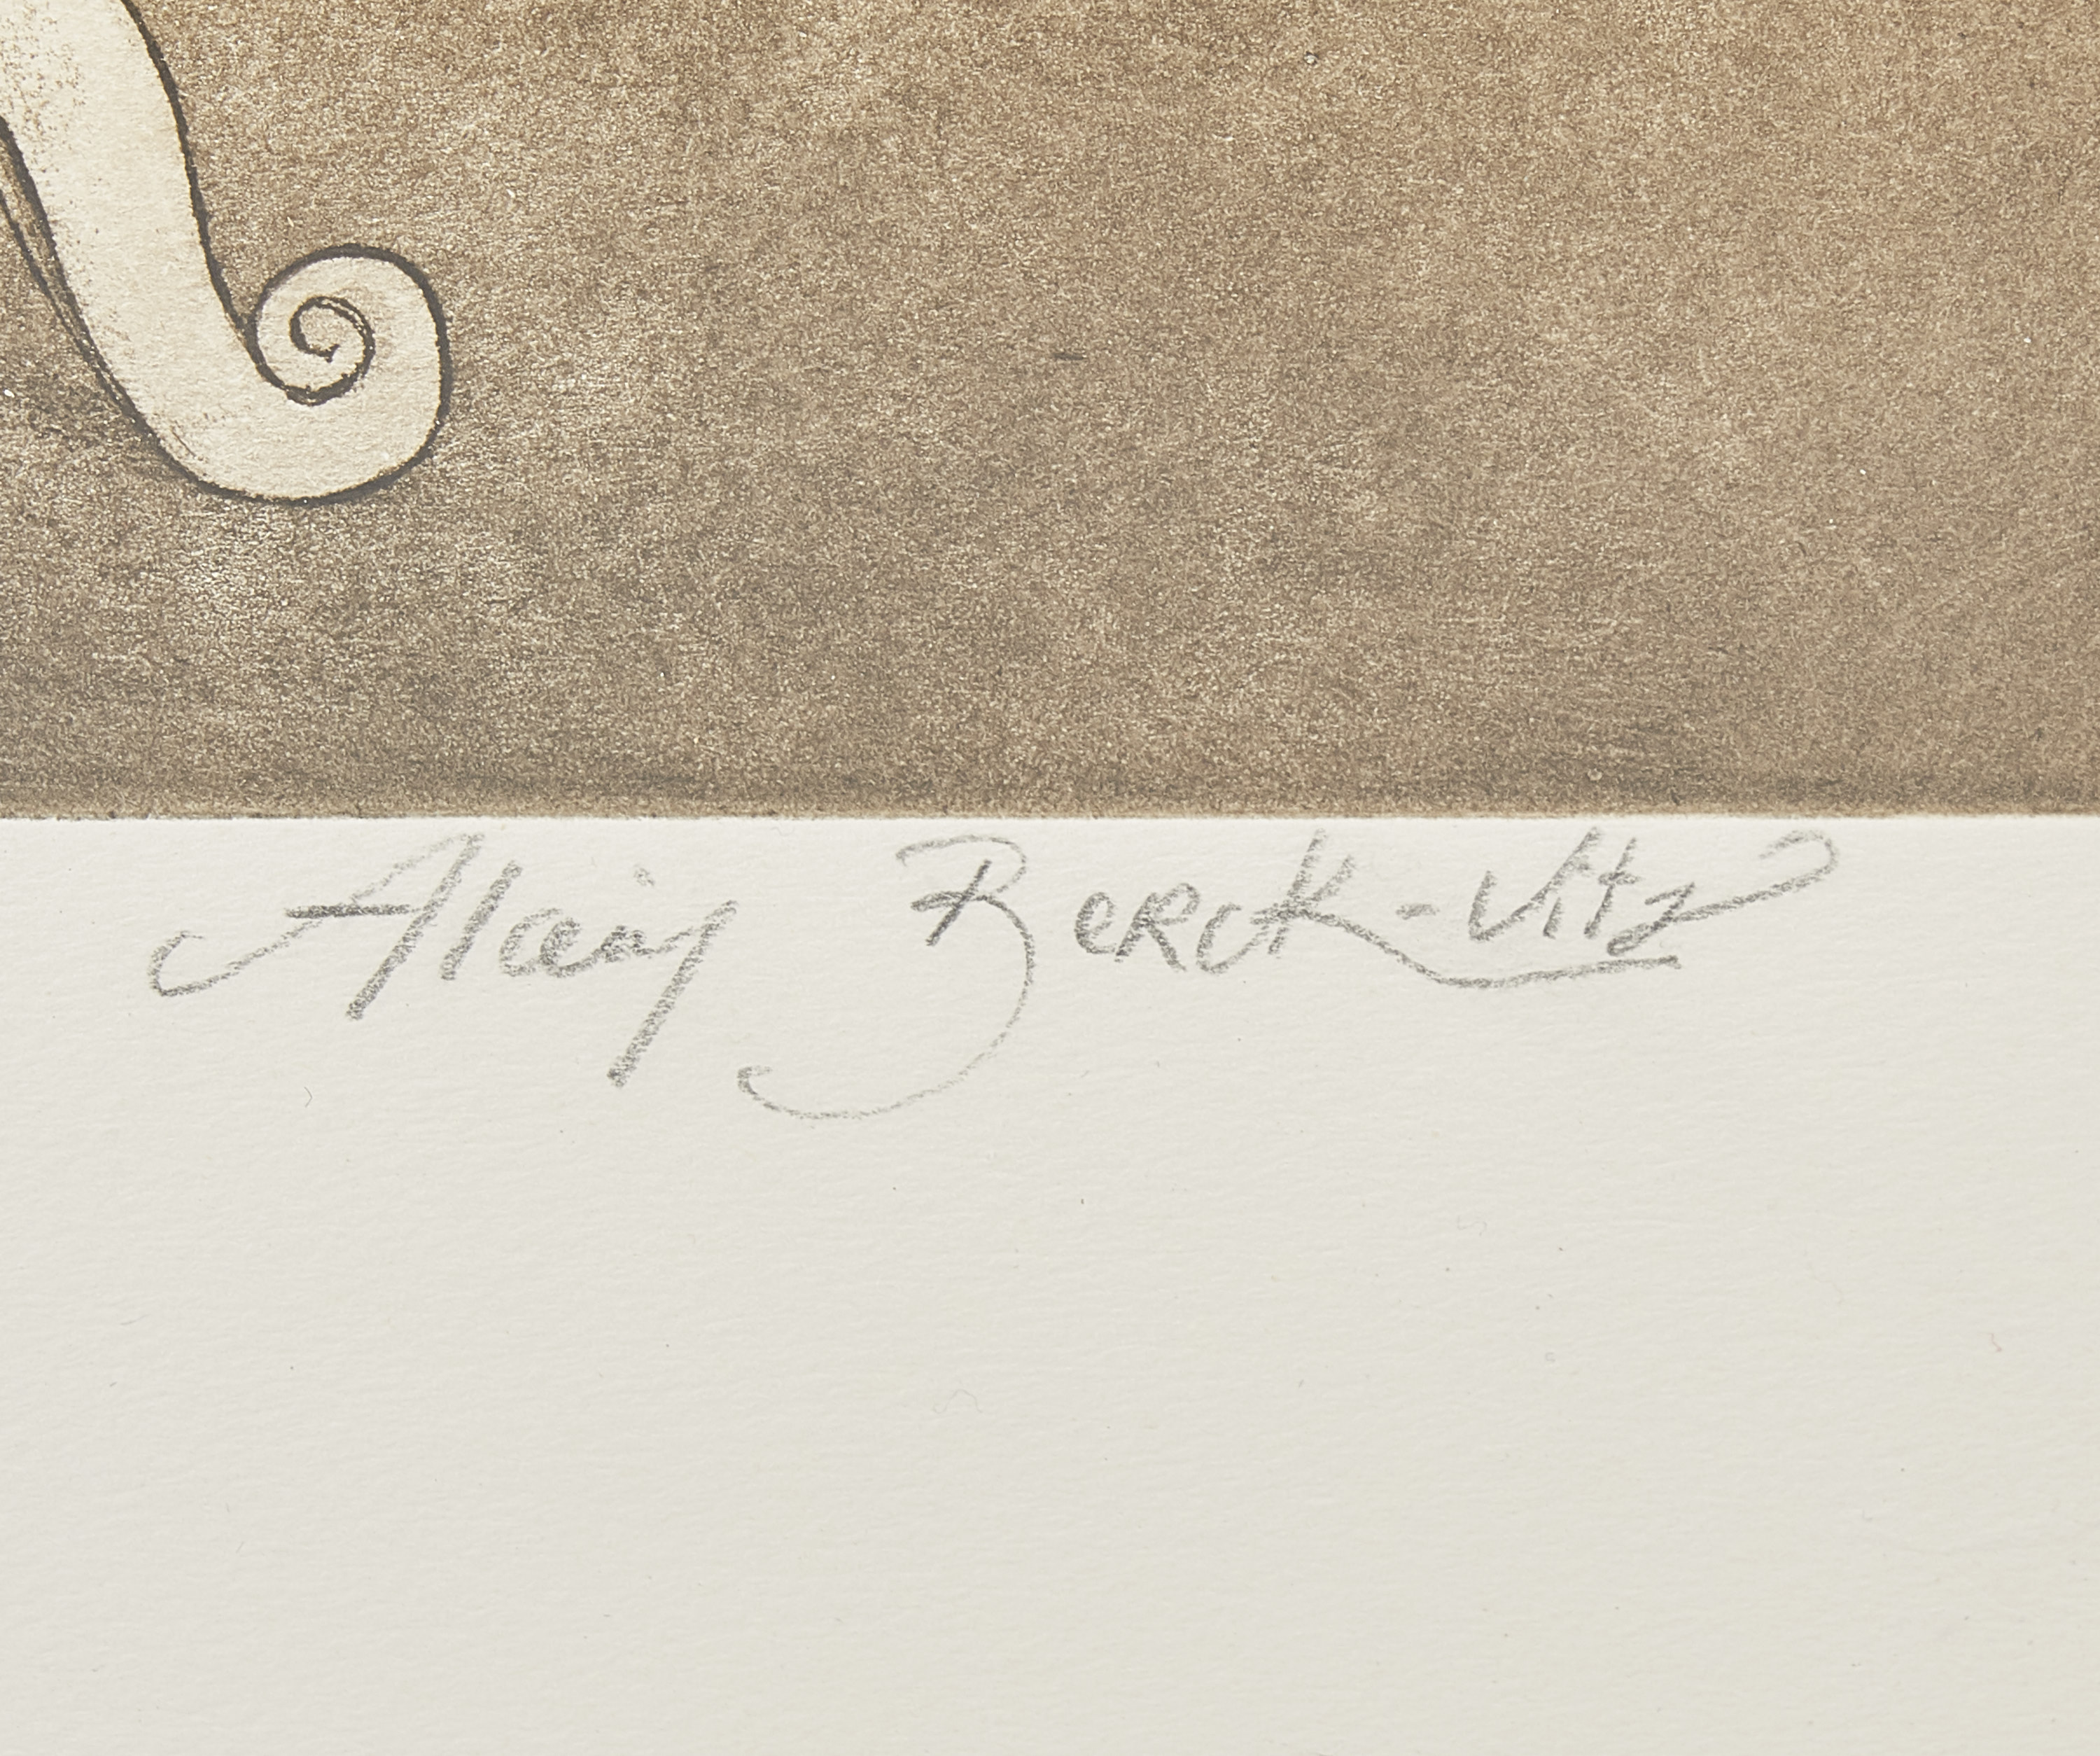 Alain Berck-Vitz